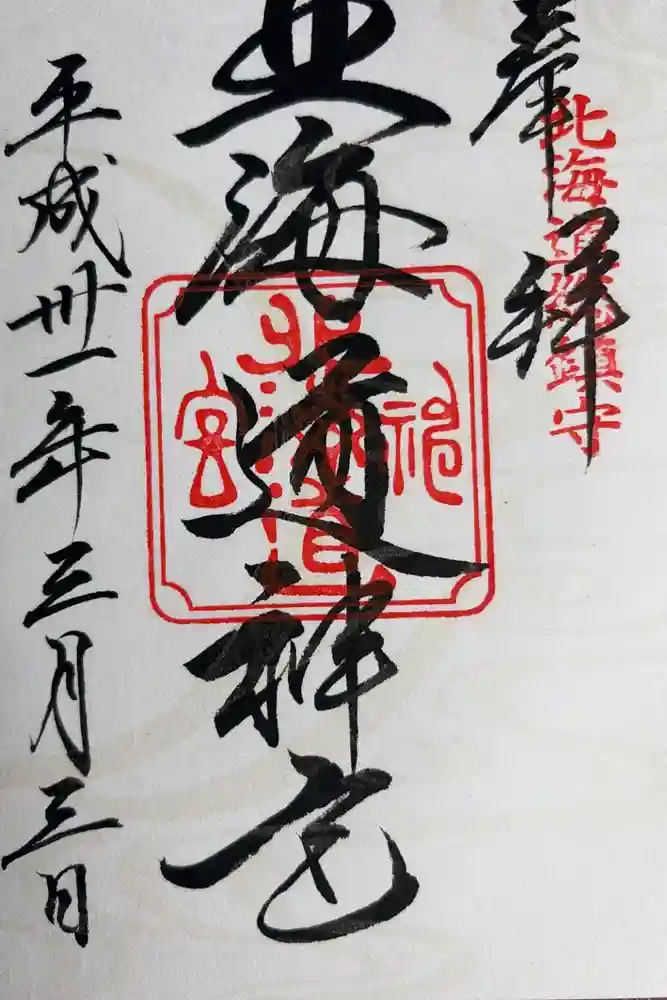 奉拝
北海道総鎮守
北海道神宮
北海道神宮
平成卅一年三月三日